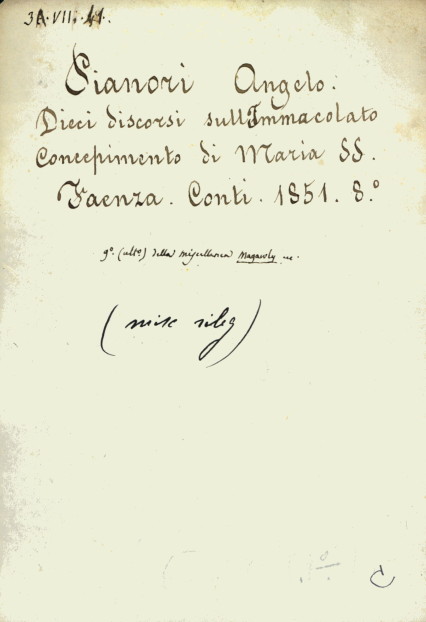 3A.VII.41.
Pianori Angelo.
Dieci discorsi sull'Immacolato
Concepimento di Maria SS.
Faenza. Conti. 1851. 8.º
9º. (ultº) della miscellanea
(misc rileg)
C